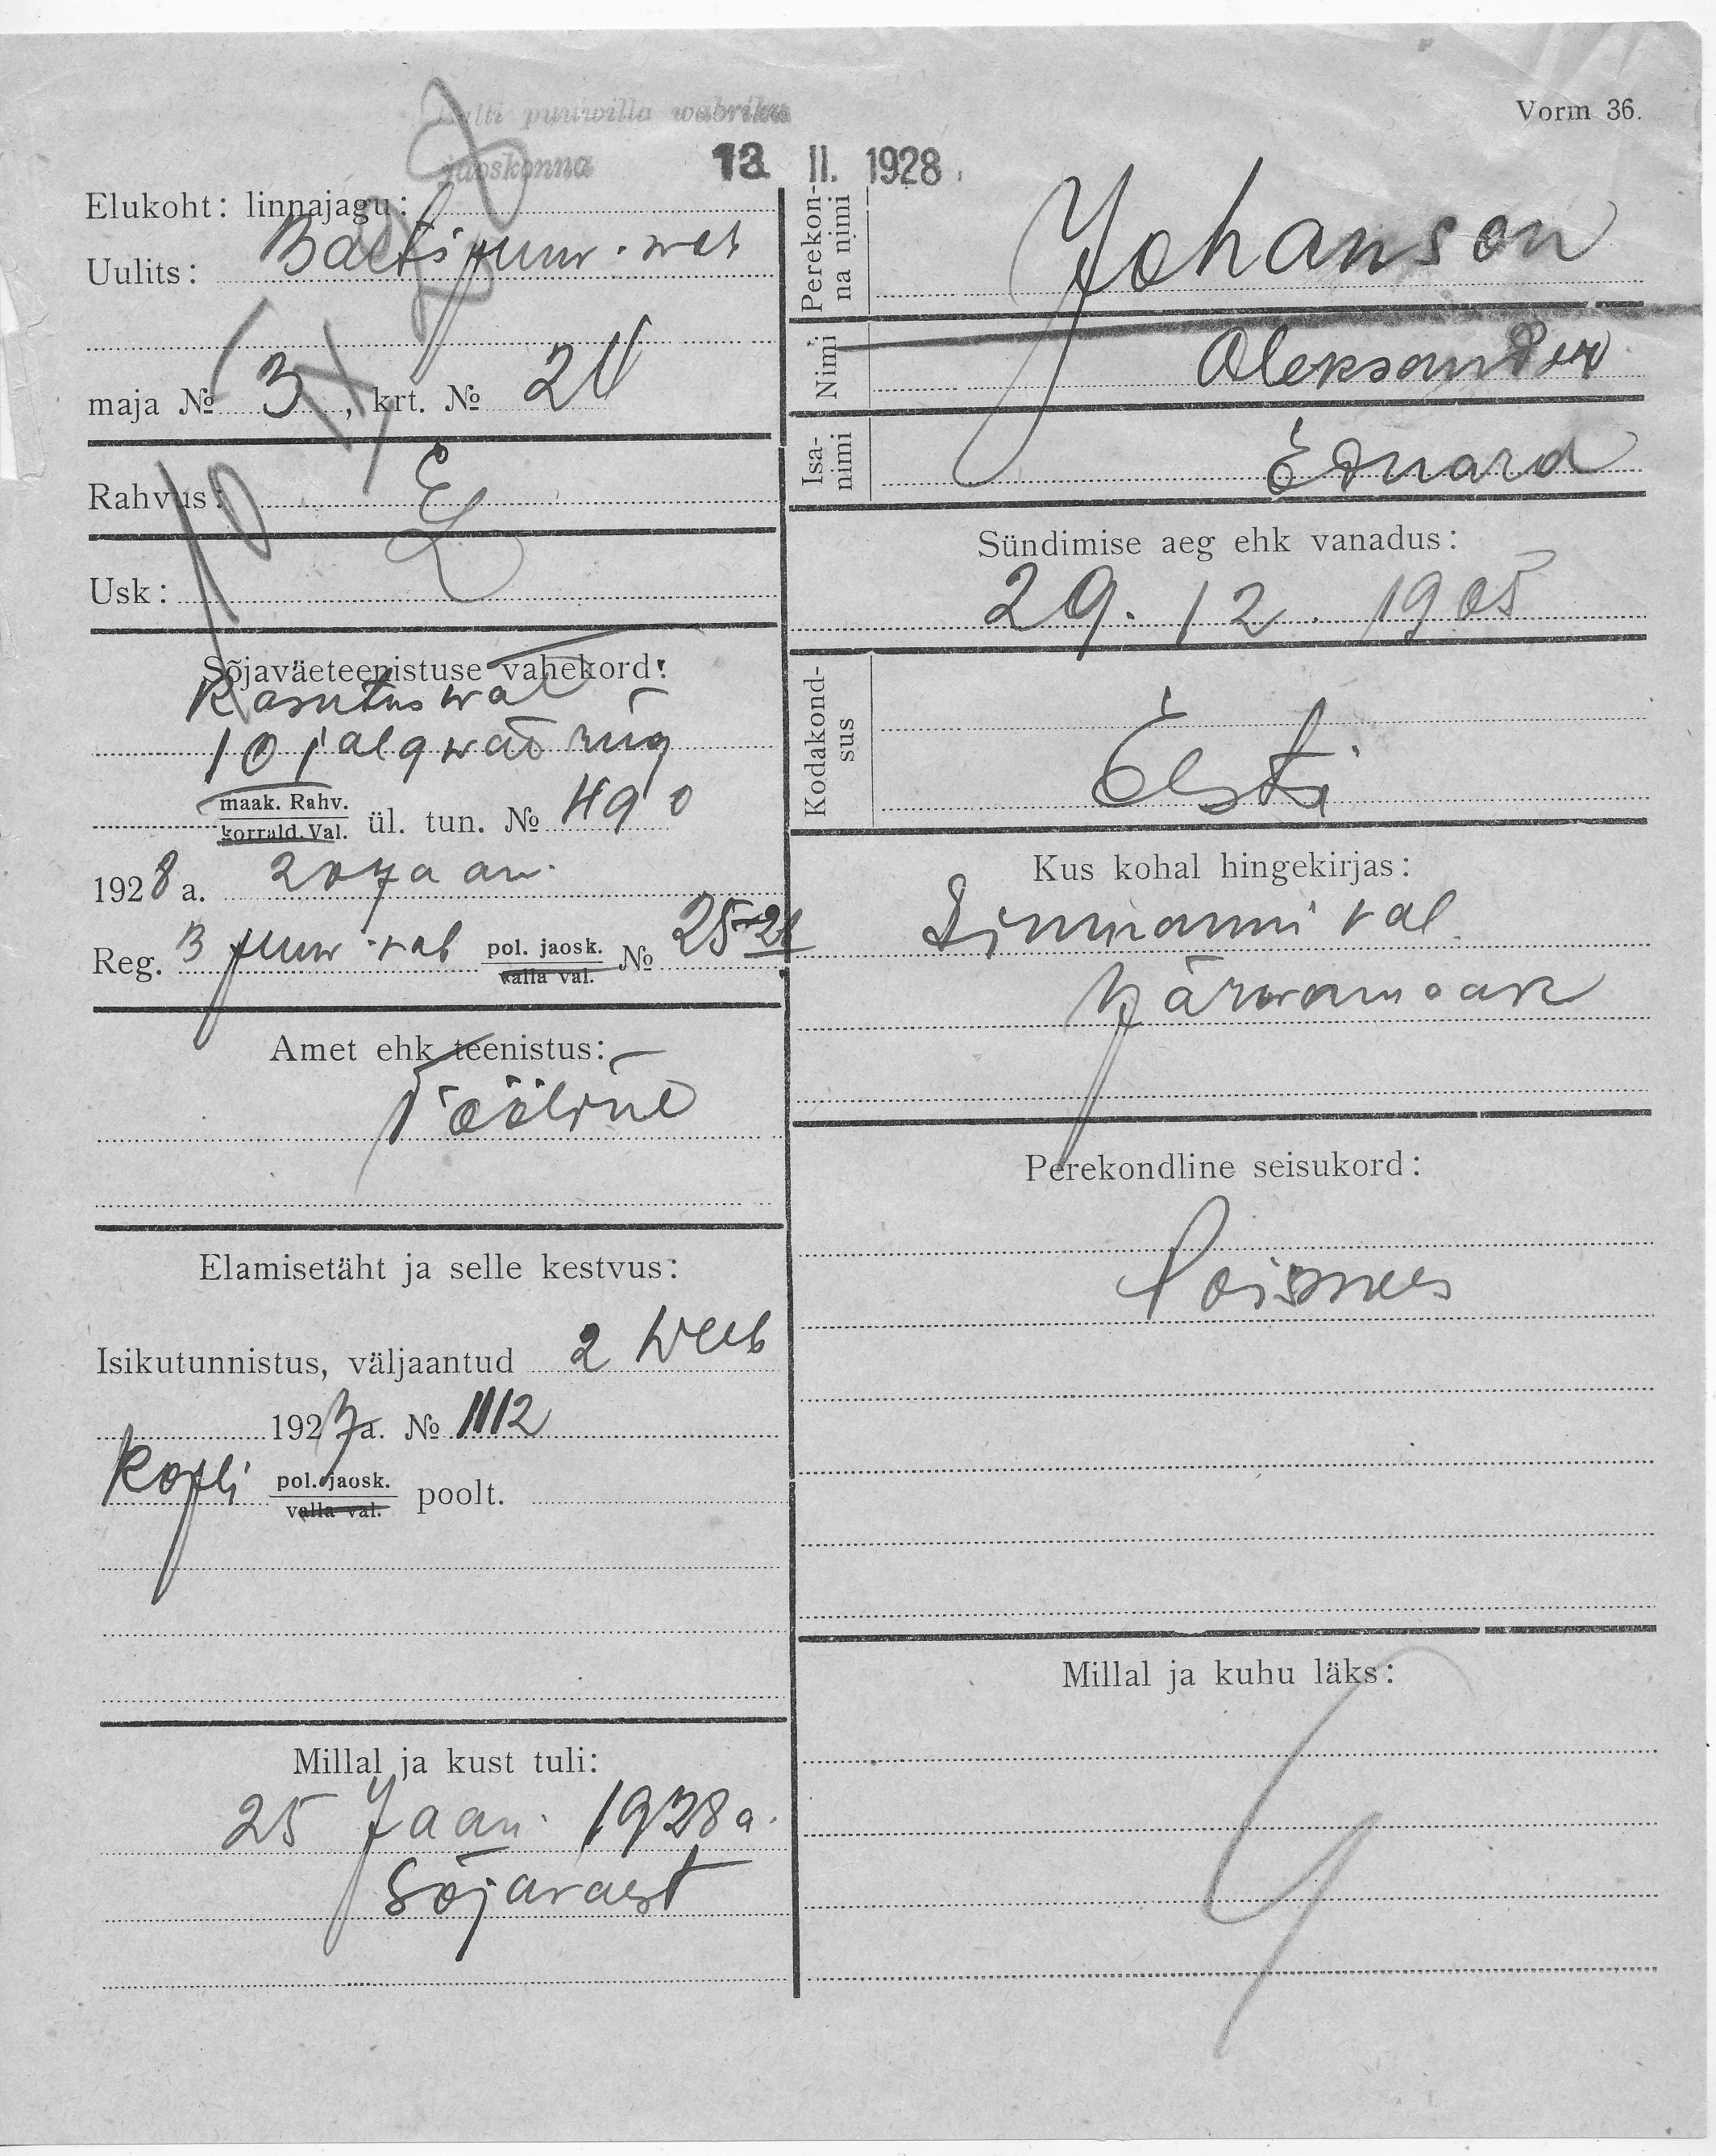 Vorm 36.
Balti puuwilla wabriku
jaoskonna
13 II. 1928.
Elukoht: linnajagu:
Uulits: Balti puuw. wab
maja № 3, krt. № 24
Rahvus: E
Usk: L
Sõjaväeteenistuse vahekord:
Kasutus wal
10 jalgwäe rüg
maak. Rahv.
korrald. Val. ül. tun. № 490
1928 a. 20 jaan.
Reg. B puuw. vab pol. jaosk. № 25-24
valla val.
Amet ehk teenistus:
Tööline
Elamisetäht ja selle kestvus:
Isikutunnistus, väljaantud 2 Weeb
1927 a. № 1112
Kopli pol. jaosk. poolt.
valla val.
Millal ja kust tuli:
25 Jaan. 1928 a.
Sõjavaest
Perekon-
na nimi Johanson
Nimi Aleksander
Isa-
nimi Eduard
Sündimise aeg ehk vanadus:
29. 12. 1905
Kodakond-
sus Eesti
Kus kohal hingekirjas:
val.
Järwamaak
Perekondline seisukord:
Poismees
Millal ja kuhu läks: